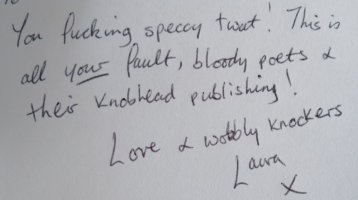 You fucking speccy twat! This is
all your fault, bloody poets &
their knobhead publishing!
Love & wobbly knockers
Laura
X